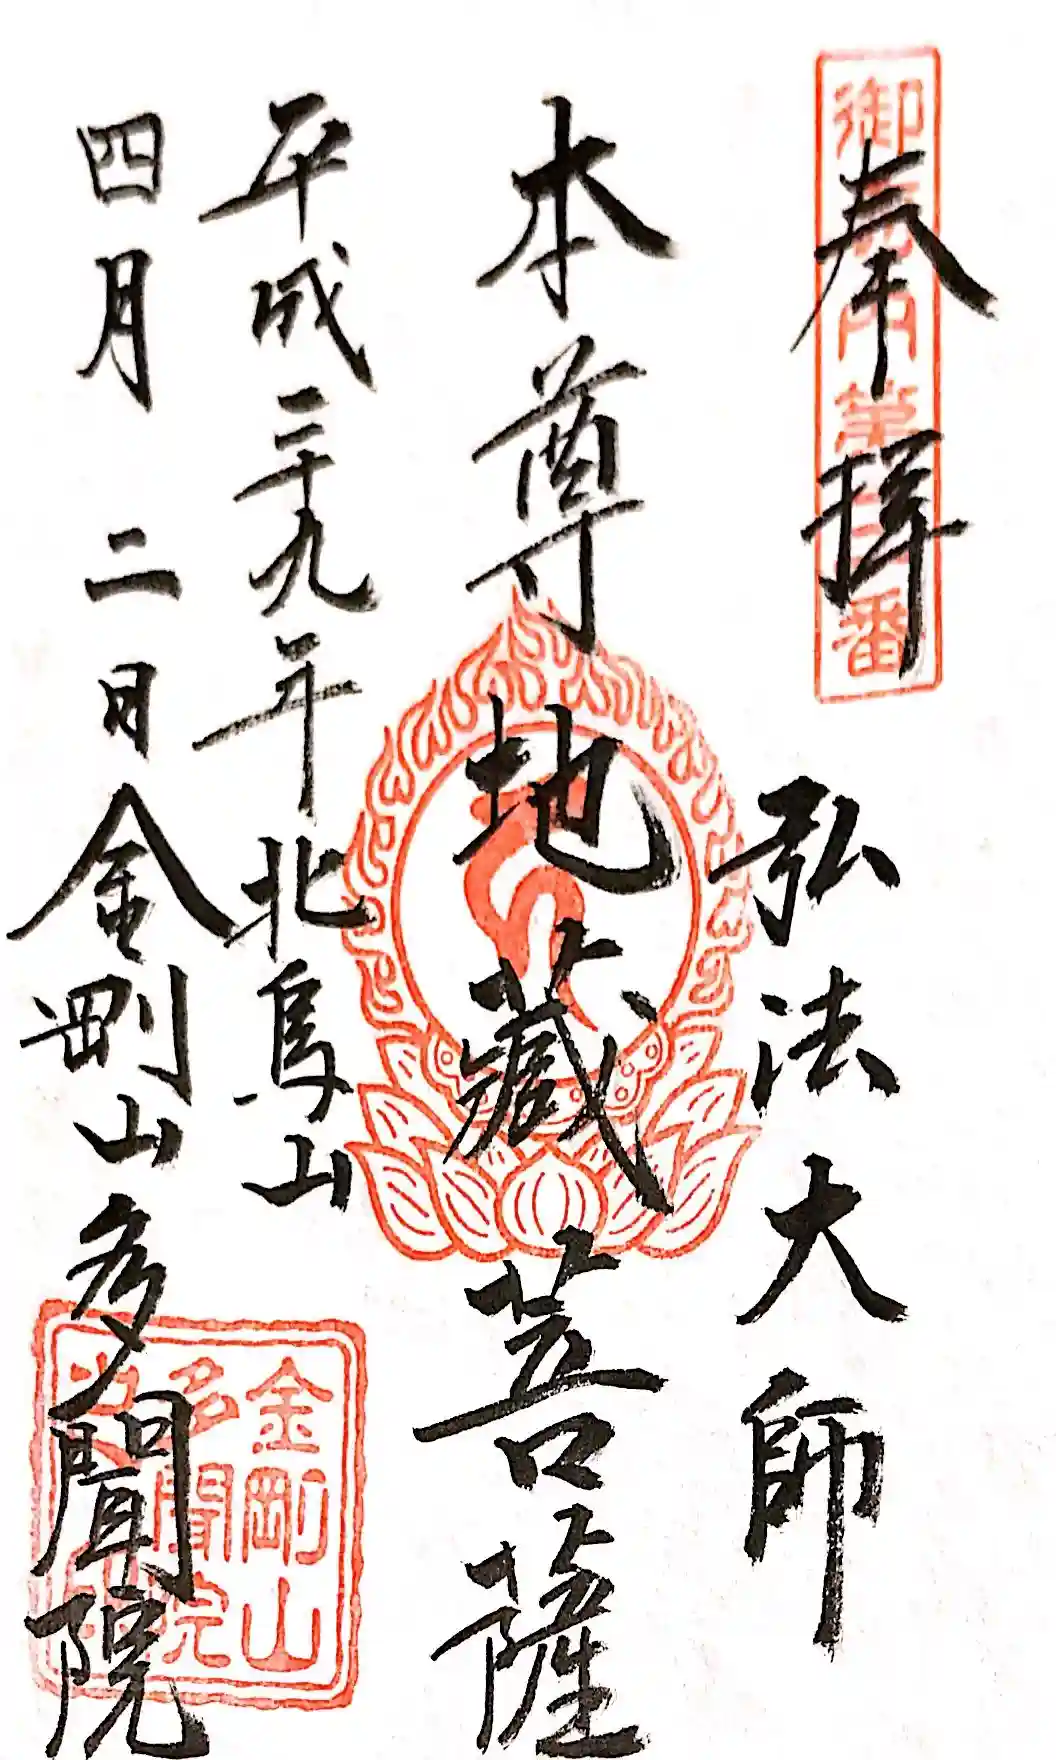 御府内第三番
奉拝
弘法大師
本尊地蔵菩薩
平成二十九年北烏山
四月二日金剛山多聞院
金剛山
多聞院